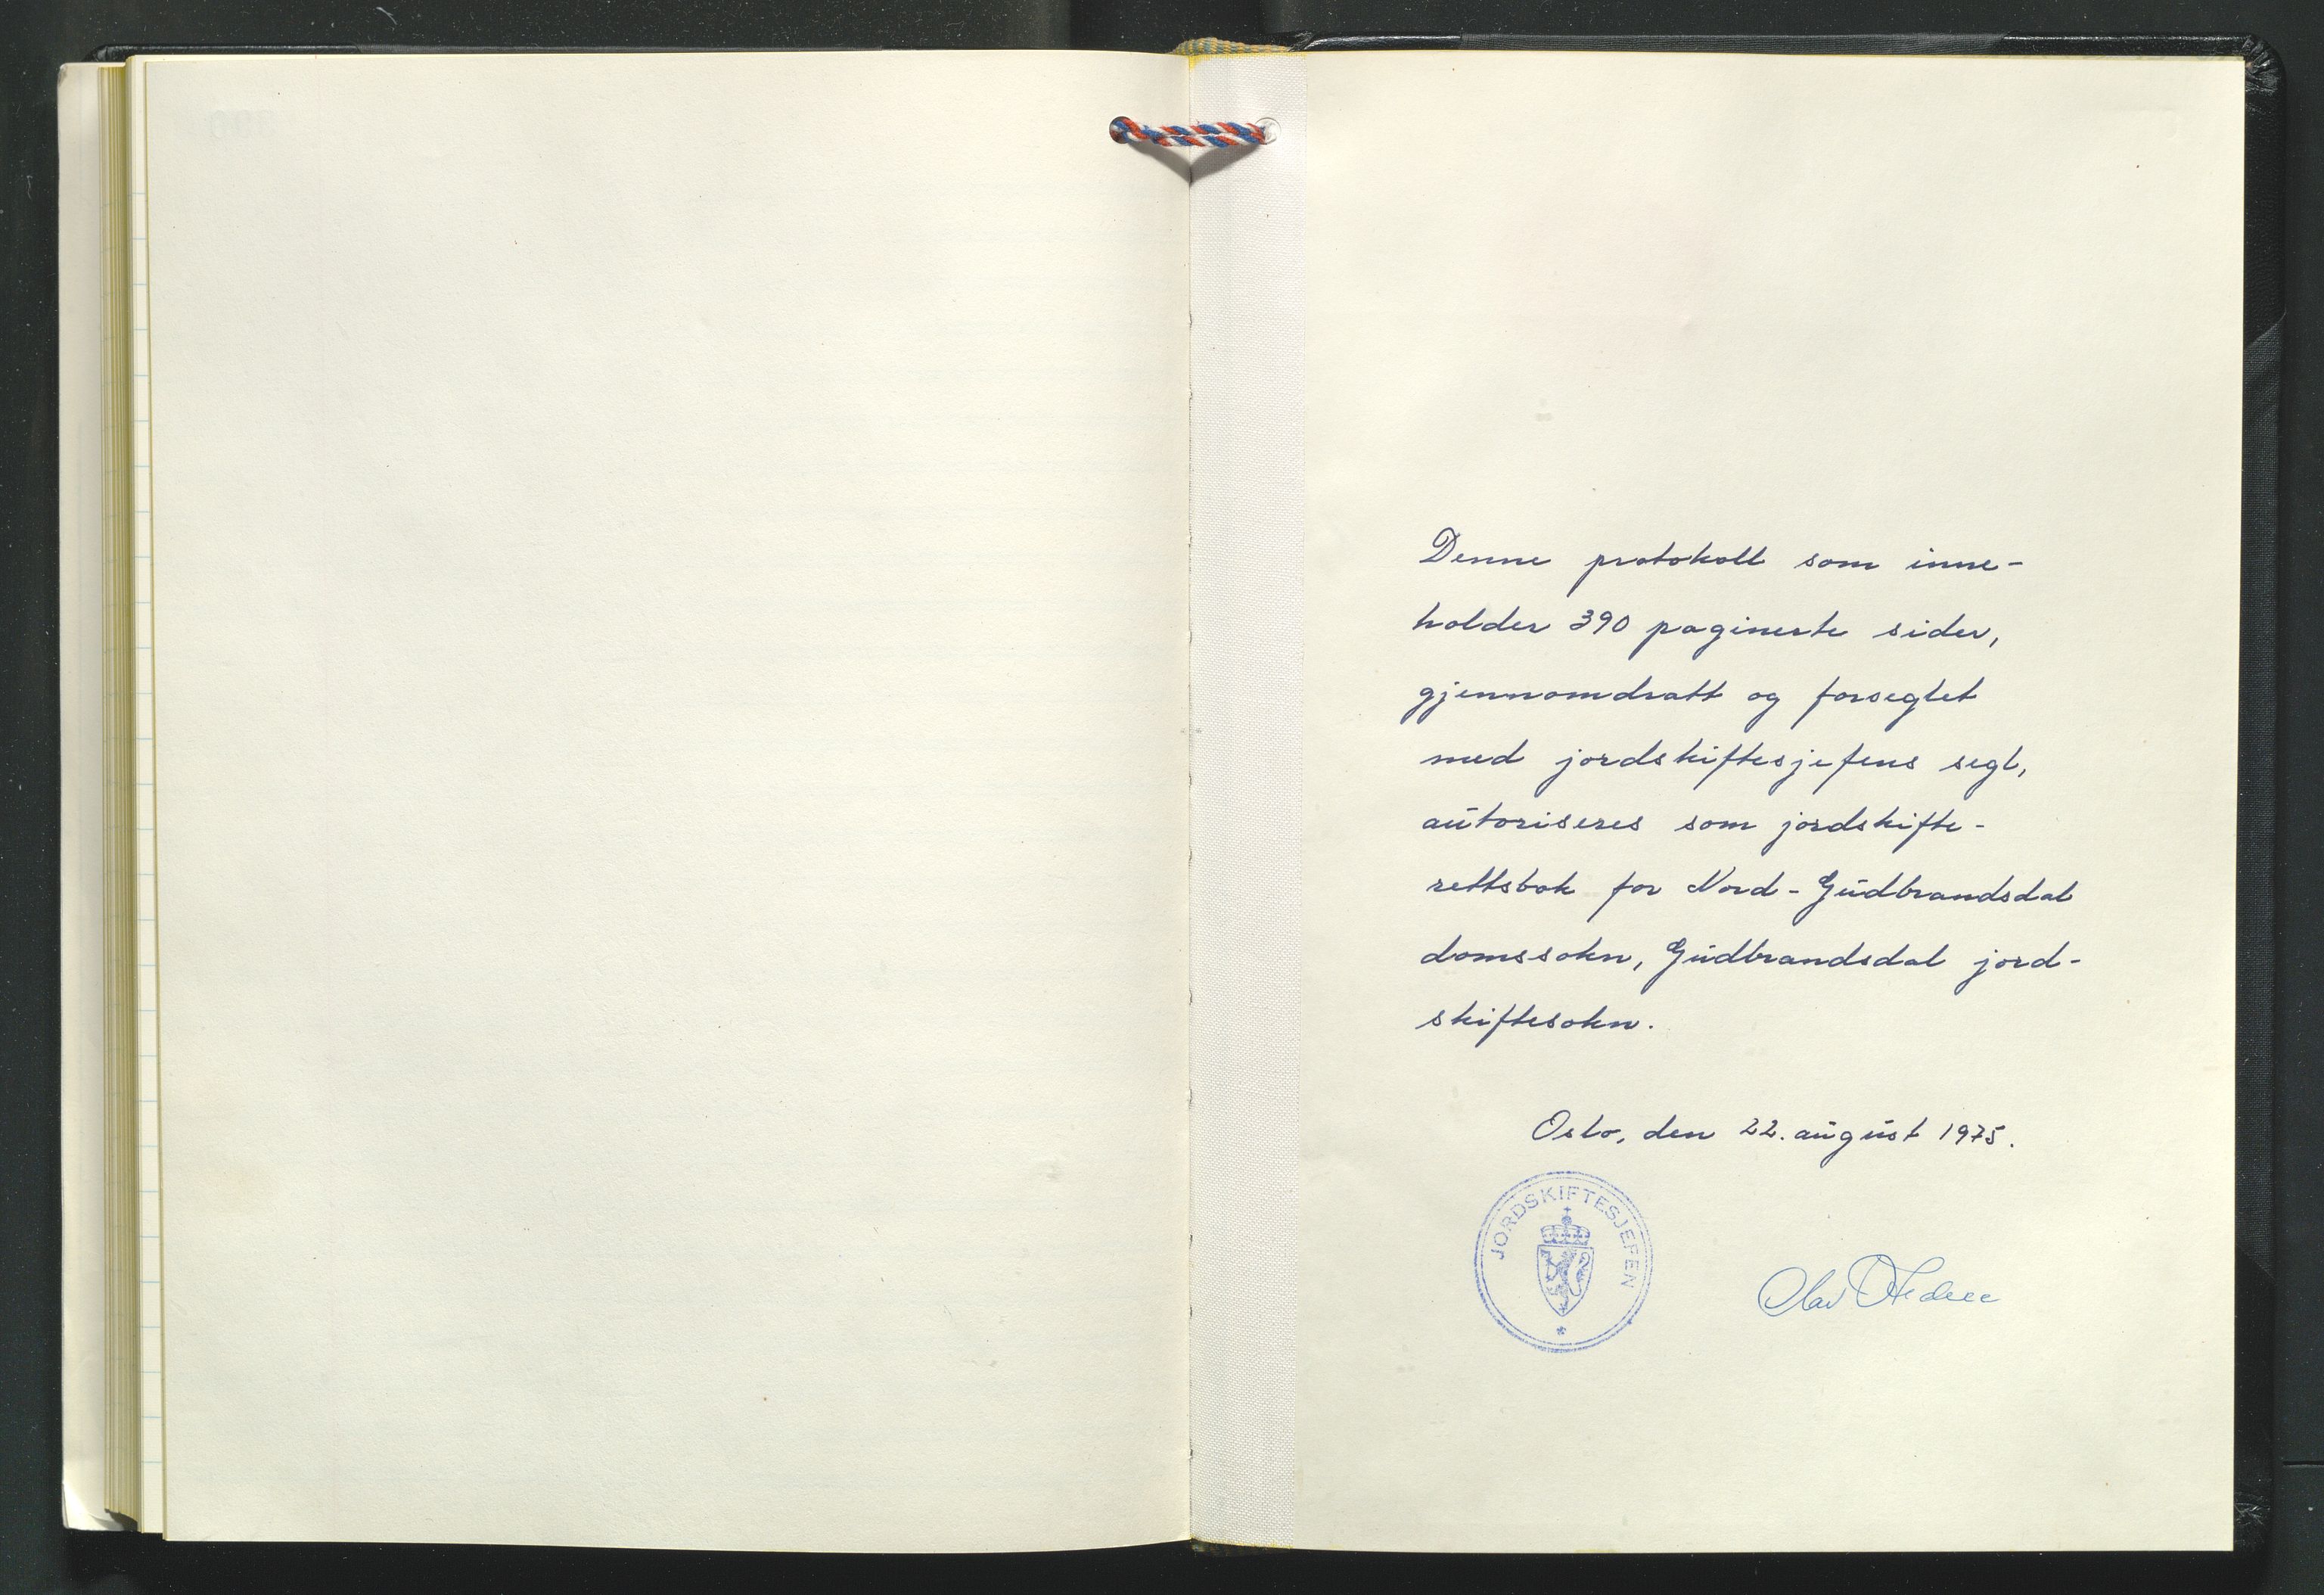 Denne protokoll som inne-
holder 390 paginerte sider,
gjennomdratt og forseglet
med jordskiftesjefens segl,
autoriseres som jordskifte-
rettsbok for Nord-Gudbrandsdal
domssokn, Gudbrandsdal jord-
skiftesokn.
Oslo, den 22. august 1975.
JORDSKIFTESJEFEN
Olav